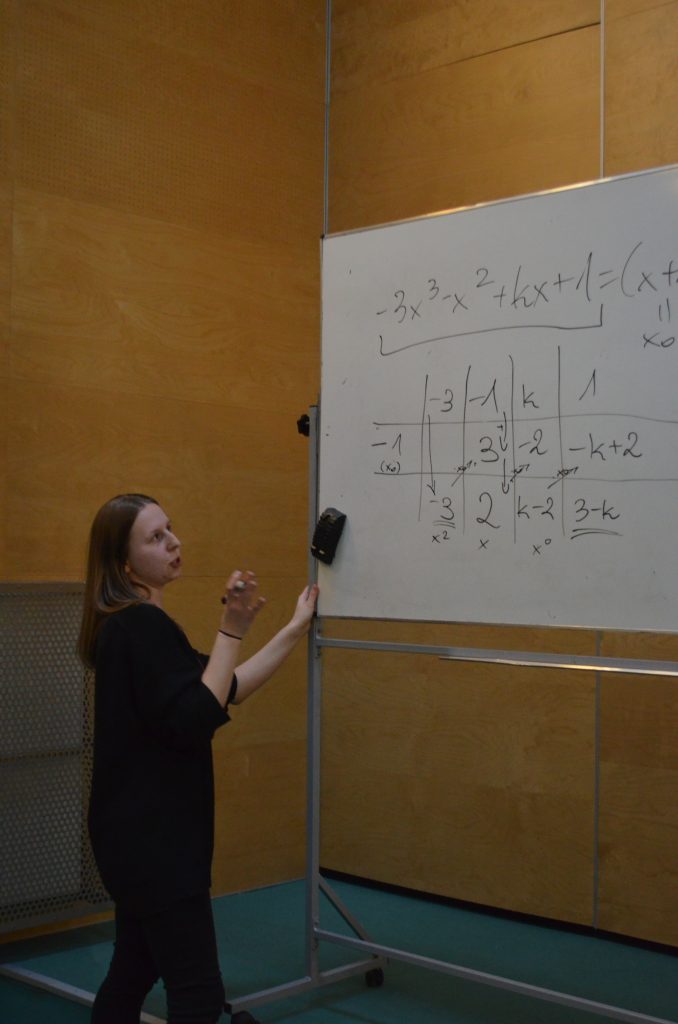 -3x³-x²+kx+1=(x+
||
x₀
-3 -1 k 1
-1 3 -2 -k+2
(x₀)
-3 2 k-2 3-k
x² x x⁰